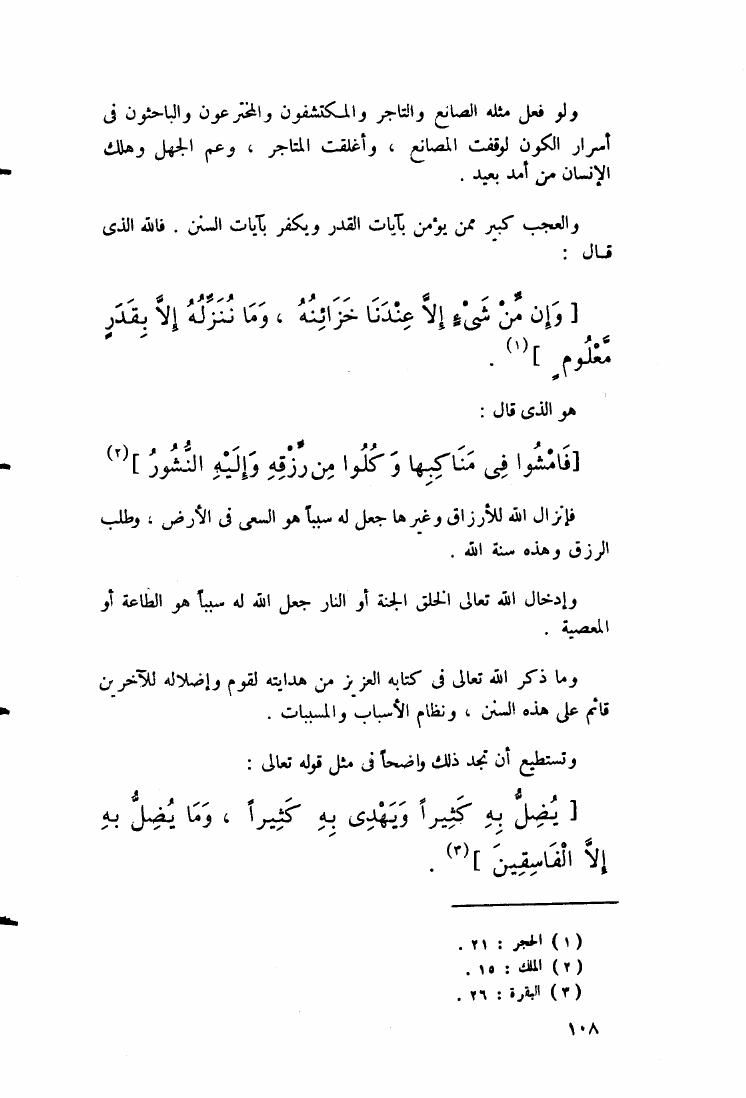 ولو فعل مثله الصانع والتاجر والمكتشفون والمخترعون والباحثون فى
أسرار الكون لوقفت المصانع ، وأغلقت المتاجر ، وعم الجهل وهلك
الإنسان من أمد بعيد .
والعجب كبير ممن يؤمن بآيات القدر ويكفر بآيات السنن . فالله الذى
قال :
[ وَإِن مِّنْ شَىْءٍ إِلاَّ عِنْدَنَا خَزَائِنُهُ ، وَمَا نُنَزِّلُهُ إِلاَّ بِقَدَرٍ
مَّعْلُومٍ ](١) .
هو الذى قال :
[فَامْشُوا فِى مَنَاكِبِها وَكُلُوا مِن رِّزْقِهِ وَإِلَيْهِ النُّشُورُ ](٢)
فإنزال الله للأرزاق وغيرها جعل له سبباً هو السعى فى الأرض ، وطلب
الرزق وهذه سنة الله .
وإدخال الله تعالى الخلق الجنة أو النار جعل الله له سبباً هو الطاعة أو
المعصية .
وما ذكر الله تعالى فى كتابه العزيز من هدايته لقوم وإضلاله للآخرين
قائم على هذه السنن ، ونظام الأسباب والمسببات .
وتستطيع أن تجد ذلك واضحاً فى مثل قوله تعالى :
[ يُضِلُّ بِهِ كَثِيراً وَيَهْدِى بِهِ كَثِيراً ، وَمَا يُضِلُّ بِهِ
إِلاَّ الْفَاسِقِينَ ](٣) .
(١) الحجر : ٢١ .
(٢) الملك : ١٥ .
(٣) البقرة : ٢٦ .
١٠٨